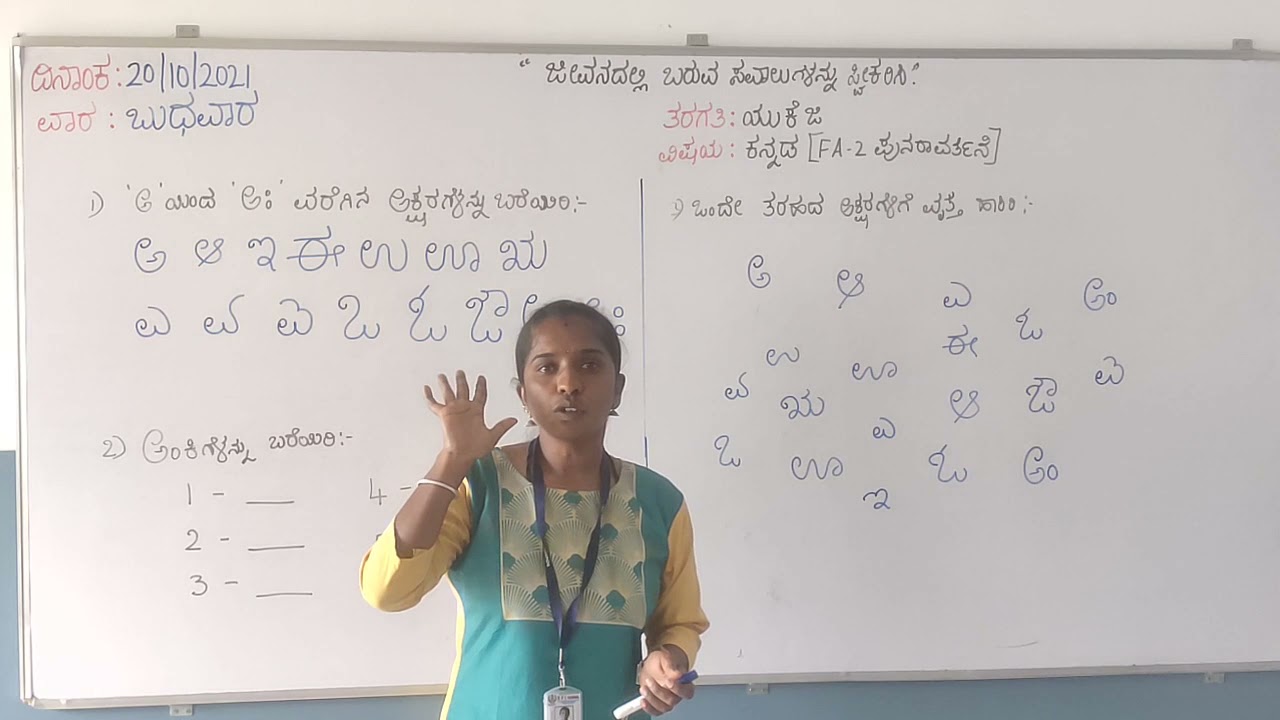 ದಿನಾಂಕ : 20/10/2021
ವಾರ : ಬುಧವಾರ
" ಜೀವನದಲ್ಲಿ ಬರುವ ಸವಾಲುಗಳನ್ನು ಸ್ವೀಕರಿಸಿ "
ತರಗತಿ : ಯು ಕೆ ಜಿ
ವಿಷಯ : ಕನ್ನಡ [FA-2 ಪುನರಾವರ್ತನೆ]
1) 'ಅ' ಯಿಂದ 'ಅಃ' ವರೆಗಿನ ಅಕ್ಷರಗಳನ್ನು ಬರೆಯಿರಿ :-
ಅ ಆ ಇ ಈ ಉ ಊ ಋ
ಎ ಏ ಐ ಒ ಓ ಔ
2) ಅಂಕಿಗಳನ್ನು ಬರೆಯಿರಿ :-
1 - ___ 4 -
2 - ___
3 - ___
3) ಒಂದೇ ತರಹದ ಅಕ್ಷರಗಳಿಗೆ ವೃತ್ತ ಹಾಕಿರಿ :-
ಅ ಆ ಎ ಅಂ
ಉ ಊ ಈ ಓ
ಏ ಋ ಎ ಆ ಔ ಐ
ಒ ಊ ಇ ಓ ಅಂ